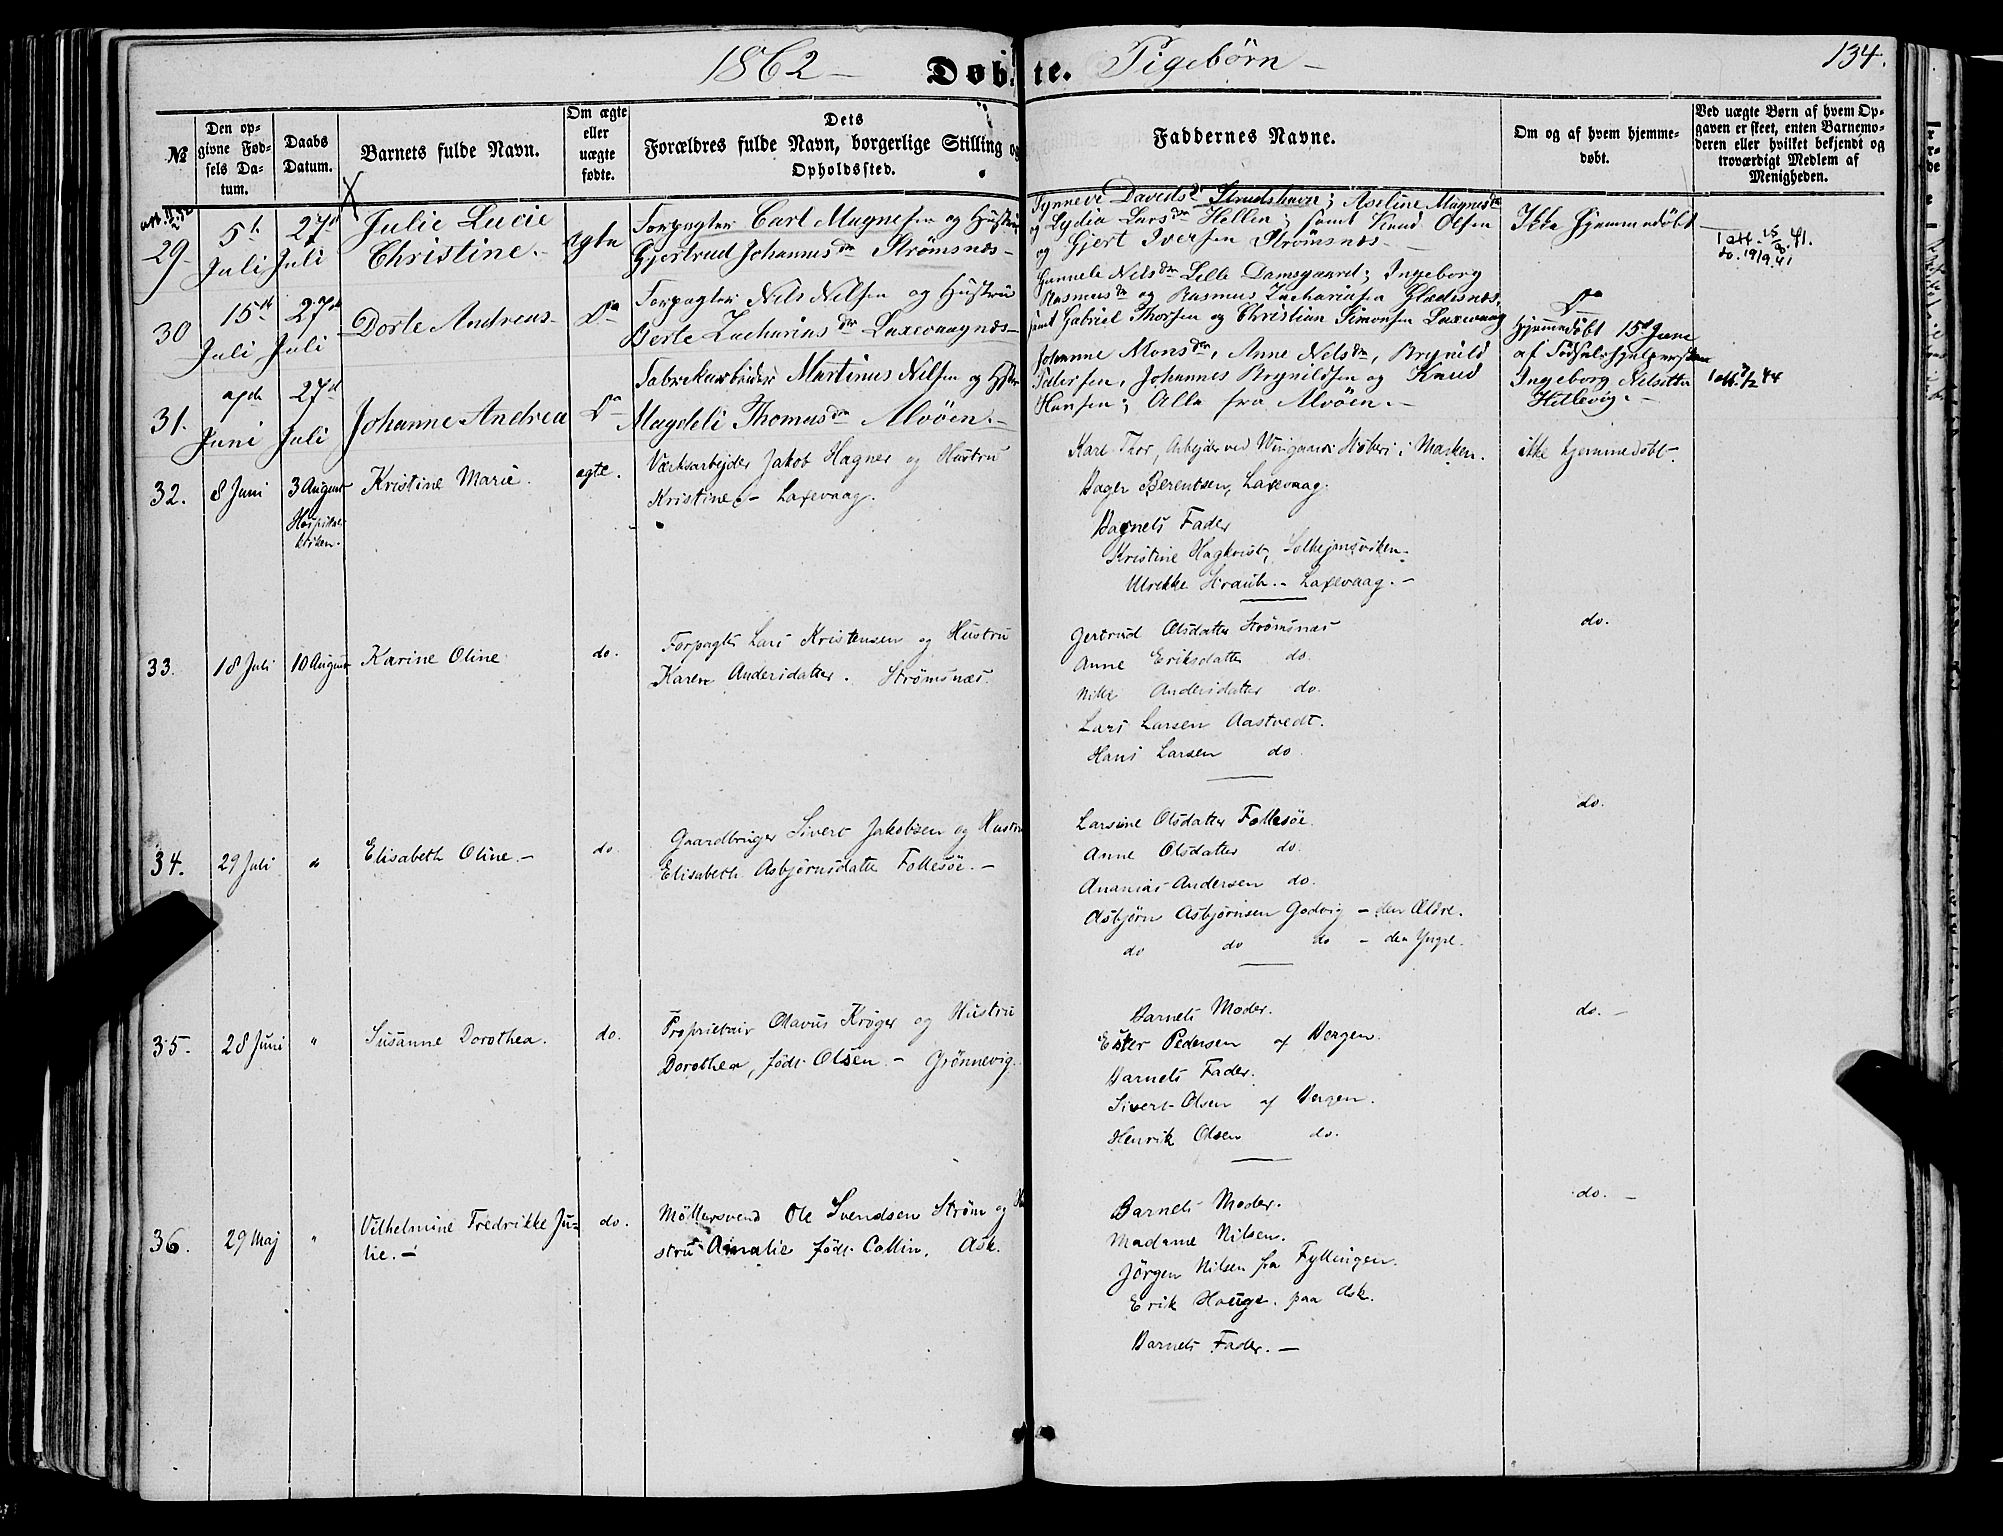 1862 — Døbte. Pigebørn —
134.
№
Den op-
givne Fød-
sels Da-
tum.
Daabs
Datum.
Barnets fulde Navn.
Om ægte
eller
uægte
fødte.
Dets
Forældres fulde Navn, borgerlige Stilling og
Opholdssted.
Faddernes Navne.
Om og af hvem hjemme-
døbt.
Ved uægte Børn af hvem Op-
gaven er skeet, enten Barnemo-
deren eller hvilket bekjendt og
troværdigt Medlem af
Menigheden.
29
5t
Juli
27d
Juli
Julie Lucie
Christine.
ægte
Forpagter Carl Magnesen og Hustru
Gjertrud Johannesdr Strømsnæs —
Synneve Davidsdr Strudshavn; Aseline Magnesdr
og Lydia Larsdr Hollen; samt Knud Olsen
og Gjert Iversen Strømsnæs —
Ikke Hjemmedøbt
1 att. 15/8.41.
do. 19/9.41
30
15de
Juli
27d
Juli
Dorte Andreas-
Do
Forpagter Nils Nilsen og Hustru
Berte Zachariasdr Laxevaagnæs —
Gunnele Nilsdr Lille Damsgaard; Ingeborg
Rasmusdr og Rasmus Zachariasen Gladesnæs,
samt Gabriel Thorsen og Christian Simonsen Laxevaag
Do
31.
Juni
27d
Juli
Johanne Andrea
Do
Fabrikarbeider Martinus Nilsen og Hstru
Magdeli Thomasdr Alvøen. —
Johanne Monsdr, Anne Nelsdr, Brynild
Pedersen, Johannes Brynildsen og Knud
Hansen; Alle fra Alvøen. —
Hjemmedøbt 15d Juni
af Fødselshjelpersken
Ingeborg Nilsdtter
Hillevig. —
1 att. 7/2 44
32.
8 Juni
3 August
Hospitals
kirken.
Kristine Marie.
ægte.
Værksarbejder Jakob Hagner og Hustru
Kristine. — Laxevaag.
Karl Thor, Arbejder ved Wingaards Støberi i Marken.
Hager Berentsen, Laxevaag.
Barnets Fader
Kristine Hagkvist, Solhejmsviken.
Ulrikke Straub. — Laxevaag. —
ikke hjemmedøbt.
33.
18 Juli
10 August
Karine Oline
do.
Forpagter Lars Kristensen og Hustru
Karen Andersdatter. Strømsnæs.
Gertrud Olsdatter Strømsnæs
Anne Eriksdatter do.
Nille Andersdatter do.
Lars Larsen Aastvedt.
Hans Larsen do
do.
34.
29 Juli
do
Elisabeth Oline. —
do.
Gaardbruger Sivert Jakobsen og Hustru
Elisabeth Asbjørnsdatter Follesøe. —
Larsine Olsdatter Follesøe.
Anne Olsdatter do.
Ananias Andersen do.
Asbjørn Asbjørnsen Godvig — den Ældre.
do do do — den Yngre.
do.
35.
28 Juni
"
Susanne Dorothea.
do.
Proprietair Olavus Krøger og Hustru
Dorothea, født Olsen. — Grønnevig.
Barnets Moder.
Ester Pedersen af Bergen.
Barnets Fader.
Sivert Olsen af Bergen.
Henrik Olsen do.
do. —
36.
29 Maj
"
Vilhelmine Fredrikke Ju-
lie. —
do.
Møllersvend Ole Svendsen Strøm og Hu
stru Amalie født Collin. Ask.
Barnets Moder.
Madame Nilsen.
Jørgen Nilsen fra Fyllingen.
Erik Houge. paa Ask.
Barnets Fader. —
do. —